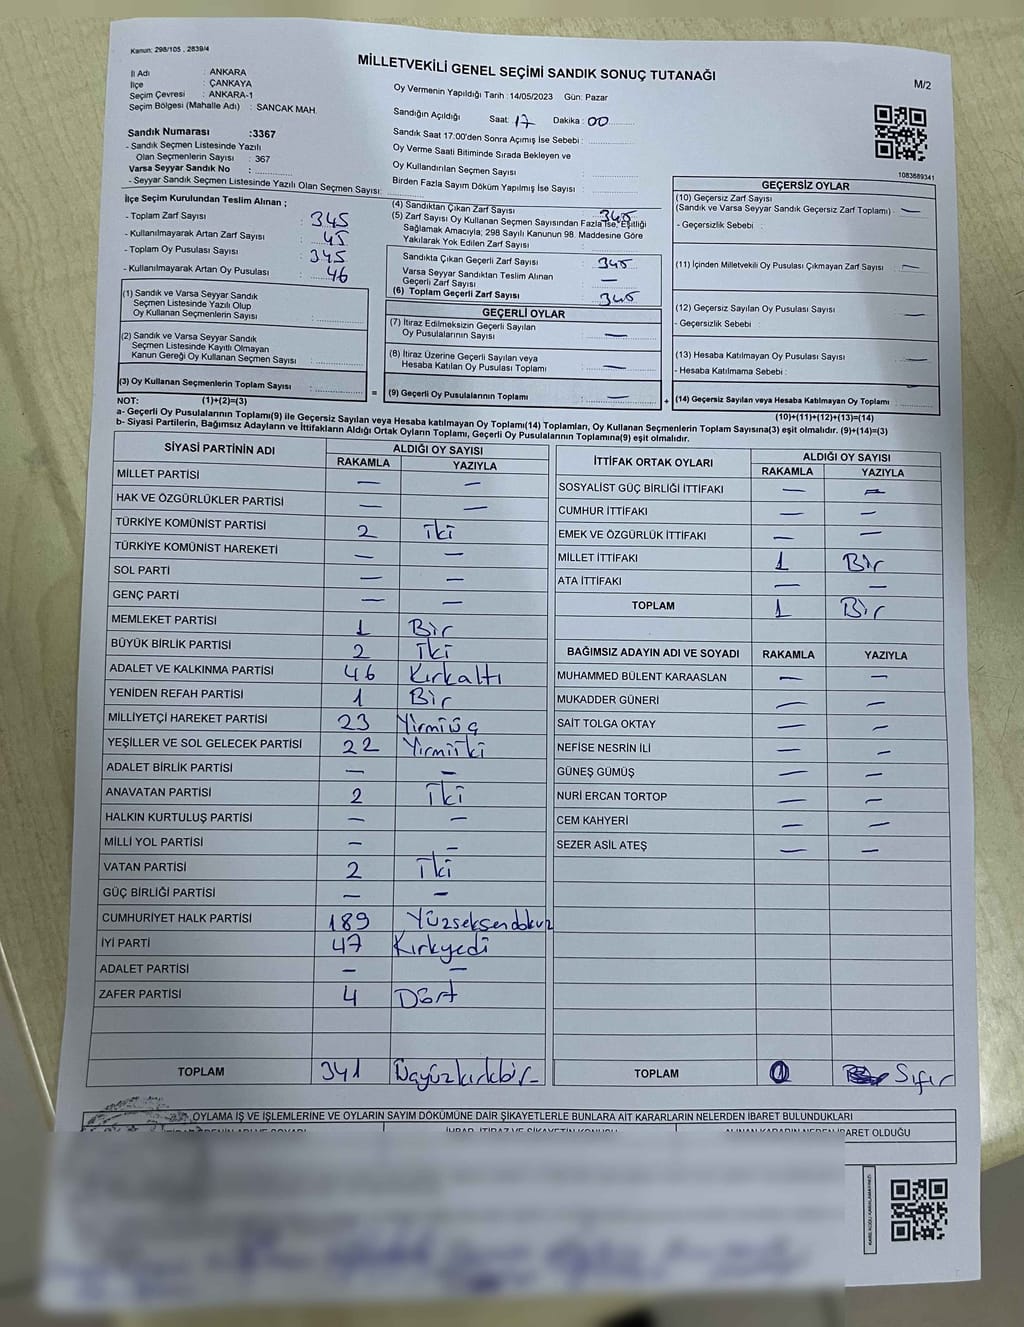 Kanun: 298/105 , 2839/4
MİLLETVEKİLİ GENEL SEÇİMİ SANDIK SONUÇ TUTANAĞI
M/2
İl Adı : ANKARA
İlçe : ÇANKAYA
Seçim Çevresi : ANKARA-1
Seçim Bölgesi (Mahalle Adı) : SANCAK MAH.
Sandık Numarası :3367
- Sandık Seçmen Listesinde Yazılı
Olan Seçmenlerin Sayısı : 367
Varsa Seyyar Sandık No :
- Seyyar Sandık Seçmen Listesinde Yazılı Olan Seçmen Sayısı:
Oy Vermenin Yapıldığı Tarih : 14/05/2023 Gün: Pazar
Sandığın Açıldığı Saat: 17 Dakika : 00
Sandık Saat 17:00'den Sonra Açımış İse Sebebi :
Oy Verme Saati Bitiminde Sırada Bekleyen ve
Oy Kullandırılan Seçmen Sayısı :
Birden Fazla Sayım Döküm Yapılmış İse Sayısı :
1083689341
İlçe Seçim Kurulundan Teslim Alınan ;
- Toplam Zarf Sayısı : 345
- Kullanılmayarak Artan Zarf Sayısı : 45
- Toplam Oy Pusulası Sayısı : 345
- Kullanılmayarak Artan Oy Pusulası : 46
(1) Sandık ve Varsa Seyyar Sandık
Seçmen Listesinde Yazılı Olup
Oy Kullanan Seçmenlerin Sayısı :
(2) Sandık ve Varsa Seyyar Sandık
Seçmen Listesinde Kayıtlı Olmayan
Kanun Gereği Oy Kullanan Seçmen Sayısı :
(3) Oy Kullanan Seçmenlerin Toplam Sayısı :
(4) Sandıktan Çıkan Zarf Sayısı : 345
(5) Zarf Sayısı Oy Kullanan Seçmen Sayısından Fazla İse, Eşitliği
Sağlamak Amacıyla, 298 Sayılı Kanunun 98. Maddesine Göre
Yakılarak Yok Edilen Zarf Sayısı :
Sandıkta Çıkan Geçerli Zarf Sayısı : 345
Varsa Seyyar Sandıktan Teslim Alınan
Geçerli Zarf Sayısı : —
(6) Toplam Geçerli Zarf Sayısı : 345
GEÇERLİ OYLAR
(7) İtiraz Edilmeksizin Geçerli Sayılan
Oy Pusulalarının Sayısı : —
(8) İtiraz Üzerine Geçerli Sayılan veya
Hesaba Katılan Oy Pusulası Toplamı : —
= (9) Geçerli Oy Pusulalarının Toplamı : —
GEÇERSİZ OYLAR
(10) Geçersiz Zarf Sayısı
(Sandık ve Varsa Seyyar Sandık Geçersiz Zarf Toplamı) : —
- Geçersizlik Sebebi :
(11) İçinden Milletvekili Oy Pusulası Çıkmayan Zarf Sayısı : —
(12) Geçersiz Sayılan Oy Pusulası Sayısı : —
- Geçersizlik Sebebi :
(13) Hesaba Katılmayan Oy Pusulası Sayısı : —
- Hesaba Katılmama Sebebi :
+ (14) Geçersiz Sayılan veya Hesaba Katılmayan Oy Toplamı :
NOT: (1)+(2)=(3)
(10)+(11)+(12)+(13)=(14)
a- Geçerli Oy Pusulalarının Toplamı(9) ile Geçersiz Sayılan veya Hesaba katılmayan Oy Toplamı(14) Toplamları, Oy Kullanan Seçmenlerin Toplam Sayısına(3) eşit olmalıdır. (9)+(14)=(3)
b- Siyasi Partilerin, Bağımsız Adayların ve İttifakların Aldığı Ortak Oyların Toplamı, Geçerli Oy Pusulalarının Toplamına(9) eşit olmalıdır.
SİYASİ PARTİNİN ADI ALDIĞI OY SAYISI
RAKAMLA YAZIYLA
MİLLET PARTİSİ — —
HAK VE ÖZGÜRLÜKLER PARTİSİ — —
TÜRKİYE KOMÜNİST PARTİSİ 2 iki
TÜRKİYE KOMÜNİST HAREKETİ — —
SOL PARTİ — —
GENÇ PARTİ — —
MEMLEKET PARTİSİ 1 Bir
BÜYÜK BİRLİK PARTİSİ 2 İki
ADALET VE KALKINMA PARTİSİ 46 Kırkaltı
YENİDEN REFAH PARTİSİ 1 Bir
MİLLİYETÇİ HAREKET PARTİSİ 23 Yirmiüç
YEŞİLLER VE SOL GELECEK PARTİSİ 22 Yirmiiki
ADALET BİRLİK PARTİSİ — —
ANAVATAN PARTİSİ 2 İki
HALKIN KURTULUŞ PARTİSİ — —
MİLLİ YOL PARTİSİ — —
VATAN PARTİSİ 2 İki
GÜÇ BİRLİĞİ PARTİSİ — —
CUMHURİYET HALK PARTİSİ 189 Yüzseksendokuz
İYİ PARTİ 47 Kırkyedi
ADALET PARTİSİ — —
ZAFER PARTİSİ 4 Dört
TOPLAM 341 Üçyüzkırkbir
İTTİFAK ORTAK OYLARI ALDIĞI OY SAYISI
RAKAMLA YAZIYLA
SOSYALİST GÜÇ BİRLİĞİ İTTİFAKI — —
CUMHUR İTTİFAKI — —
EMEK VE ÖZGÜRLÜK İTTİFAKI — —
MİLLET İTTİFAKI 1 Bir
ATA İTTİFAKI — —
TOPLAM 1 Bir
BAĞIMSIZ ADAYIN ADI VE SOYADI RAKAMLA YAZIYLA
MUHAMMED BÜLENT KARAASLAN — —
MUKADDER GÜNERİ — —
SAİT TOLGA OKTAY — —
NEFİSE NESRİN İLİ — —
GÜNEŞ GÜMÜŞ — —
NURİ ERCAN TORTOP — —
CEM KAHYERİ — —
SEZER ASİL ATEŞ — —
TOPLAM Sıfır
OYLAMA İŞ VE İŞLEMLERİNE VE OYLARIN SAYIM DÖKÜMÜNE DAİR ŞİKAYETLERLE BUNLARA AİT KARARLARIN NELERDEN İBARET BULUNDUKLARI
ALINAN KARARIN NEDEN İBARET OLDUĞU